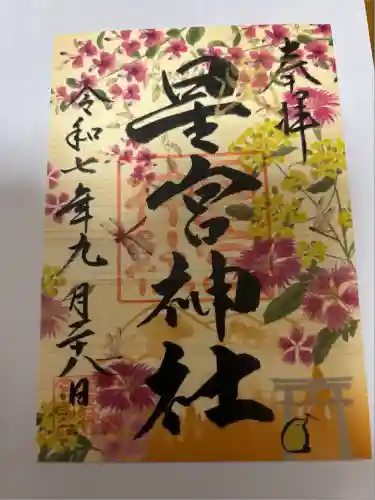 奉拝
星宮神社
令和七年九月二十八日